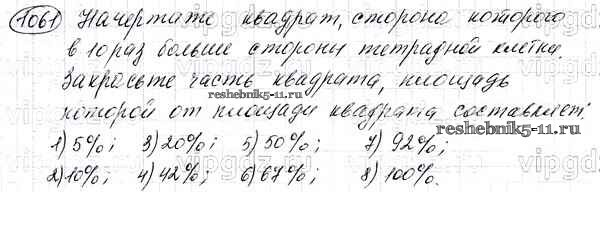 1061 Начертите квадрат, сторона которого
в 10 раз больше стороны тетрадной клетки.
Закрасьте часть квадрата, площадь
которой от площади квадрата составляет:
reshebnik5-11.ru
reshebnik5-11.ru
1) 5%; 3) 20%; 5) 50%; 7) 92%;
2) 10%; 4) 42%; 6) 67%; 8) 100%.